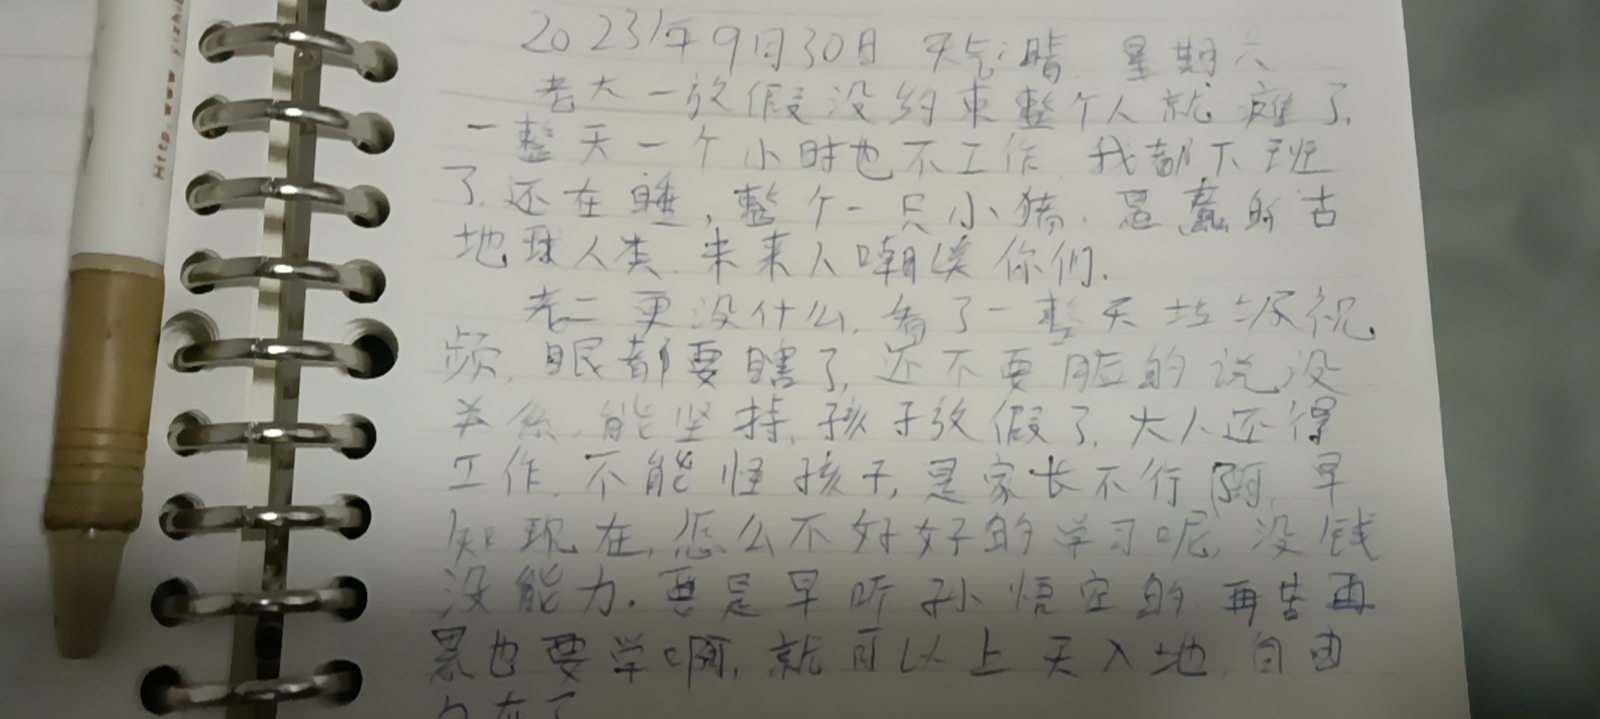 2023年9月30日 天气:晴 星期六
老大一放假没约束整个人就瘫了.
一整天一个小时也不工作.我都下班
了.还在睡,整个一只小猪.愚蠢的古
地球人类.未来人嘲笑你们.
老二更没什么.看了一整天垃圾视
频.眼都要瞎了.还不要脸的说没
关系.能坚持.孩子放假了.大人还得
工作.不能怪孩子,是家长不行啊.早
知现在,怎么不好好的学习呢,没钱
没能力.要是早听孙悟空的.再苦再
累也要学啊,就可以上天入地.自由
自在了